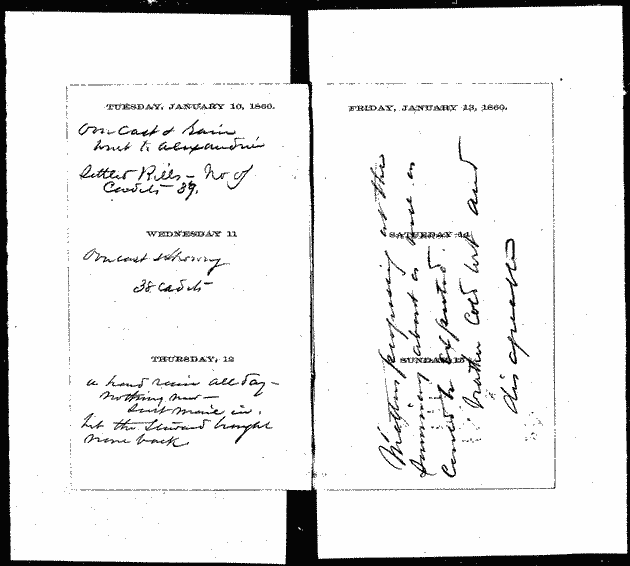 TUESDAY, JANUARY 10, 1860.
Overcast & Rain
went to Alexandria
Settled Bills – No of
Cadets 39.
WEDNESDAY 11
Overcast & Showery
38 Cadets
THURSDAY, 12
a hard rain all day –
nothing new –
Sent mail in.
but the Steward brought
none back
FRIDAY, JANUARY 13, 1860.
SATURDAY 14
SUNDAY 15
Matters progressing at the
Seminary about as well as
could be expected.
Weather cold wet and
disagreeable